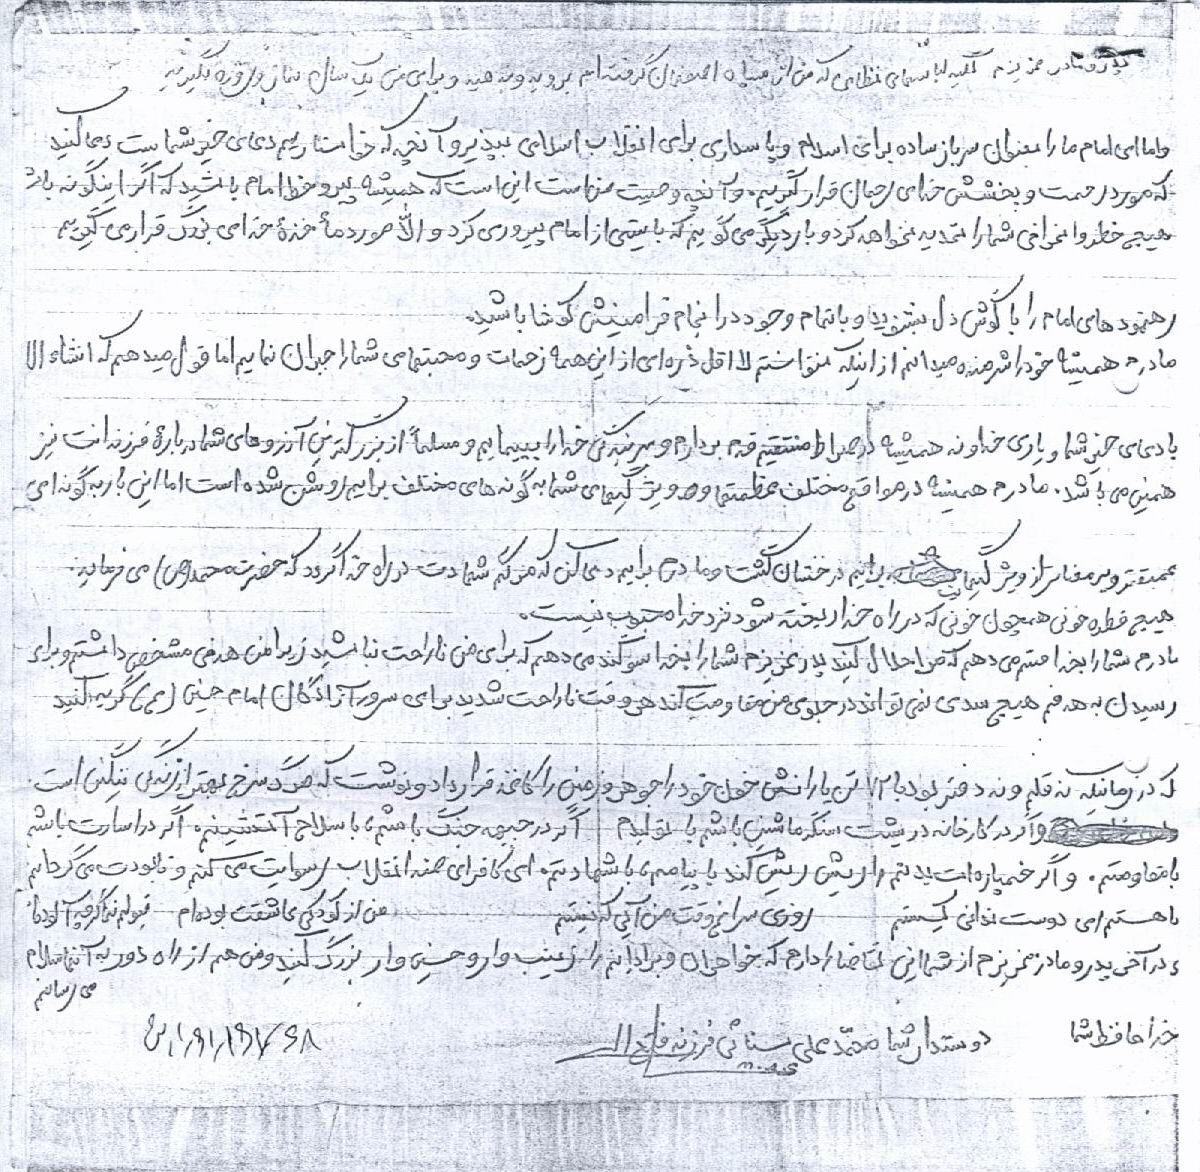 پدر و مادر عزیزم کلیه لباسهای نظامی که من از سپاه اصفهان گرفته‌ام ببرید و بدهید و برای من یک سال نماز و روزه بگیرید
و اما ای امام ما را بعنوان سرباز ساده برای اسلام و پاسداری برای انقلاب اسلامی بپذیر و آنچه که خواستاریم دعای خیر شماست دعا کنید
که مورد رحمت و بخشش خدای رحمان قرار گیریم. و آنچه وصیت من است این است که همیشه پیرو خط امام باشید که اگر اینگونه باشد
هیچ خطر و انحرافی شما را تهدید نخواهد کرد و بار دیگر می گویم که بایستی از امام پیروی کرد و الا مورد مأخذهٔ خدای بزرگ قرار می گیریم
رهنمودهای امام را با گوش دل بشنوید و با تمام وجود در انجام فرامینش کوشا باشید.
مادرم همیشه خود را شرمنده میدانم از اینکه نتوانستم لااقل ذره‌ای از این همه زحمات و محبتهای شما را جبران نمایم اما قول میدهم که انشاء الا
با دعای خیر شما و یاری خداوند همیشه در صراط مستقیم قدم بردارم و مسلماً از بزرگترین آرزوهای شما دربارهٔ فرزندانت نیز
همین می باشد. مادرم همیشه در مواقع مختلف عظمتها و ویژگیهای شما به گونه های مختلف برایم روشن شده است اما این بار به گونه ای
عمیقتر و پرمعناتر از ویژگیهایت برایم درخشان گشت و مادرم برایم دعا کن که مرگم شهادت در راه خدا گردد که حضرت محمد (ص) می فرماید.
هیچ قطره خونی همچون خونی که در راه خدا ریخته شود نزد خدا محبوب نیست.
مادرم شما را بخدا قسم می دهم که مرا حلال کنید پدر عزیزم شما را بخدا سوگند می دهم که برای من ناراحت نباشید زیرا من هدفی مشخص داشتم و برای
رسیدن به هدفم هیچ سدی نمی تواند در جلوی من مقاومت کند هر وقت ناراحت شدید برای سرور آزادگان امام حسین (ع) گریه کنید
که در زمانیکه نه قلم و نه دفتر بود با یارانش خون خود را جوهر و زمین را کاغذ قرار داد و نوشت که مرگ سرخ بهتر از زندگی ننگین است
و اگر در کارخانه در پشت سنگر ماشین باشم با تولیدم اگر در جبهه جنگ باشم با سلاح آتشینم. اگر در اسارت باشم
با مقاومتم. و اگر خمپاره‌ات بدنم را ریش ریش کند با پیامم با شما دشمنم. ای کافرای ضد انقلاب رسوایت می کنم و نابودت می گردانم
ما هستم ای دوست ندانی کیستم روزی سراغ وقت من آیی که نیستم من از کودکی عاشقت بوده‌ام قبولم نما گرچه آلوده‌ام
و در آخر پدر و مادر عزیزم از شما این تقاضا را دارم که خواهران و برادرانم را زینب وار و حسین وار بزرگ کنید و من هم از راه دور به آنها سلام
می رسانم
خدا حافظ شما دوستدار شما محمد علی سنائی فرزند فتح الله